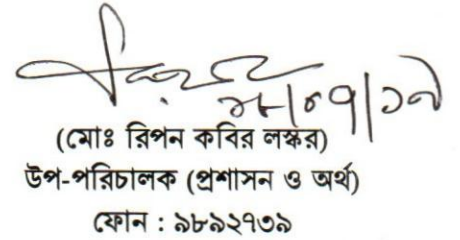 ২৮/০৭/১৯
(মোঃ রিপন কবির লস্কর)
উপ-পরিচালক (প্রশাসন ও অর্থ)
ফোন : ৯৮৯২৭৩৯